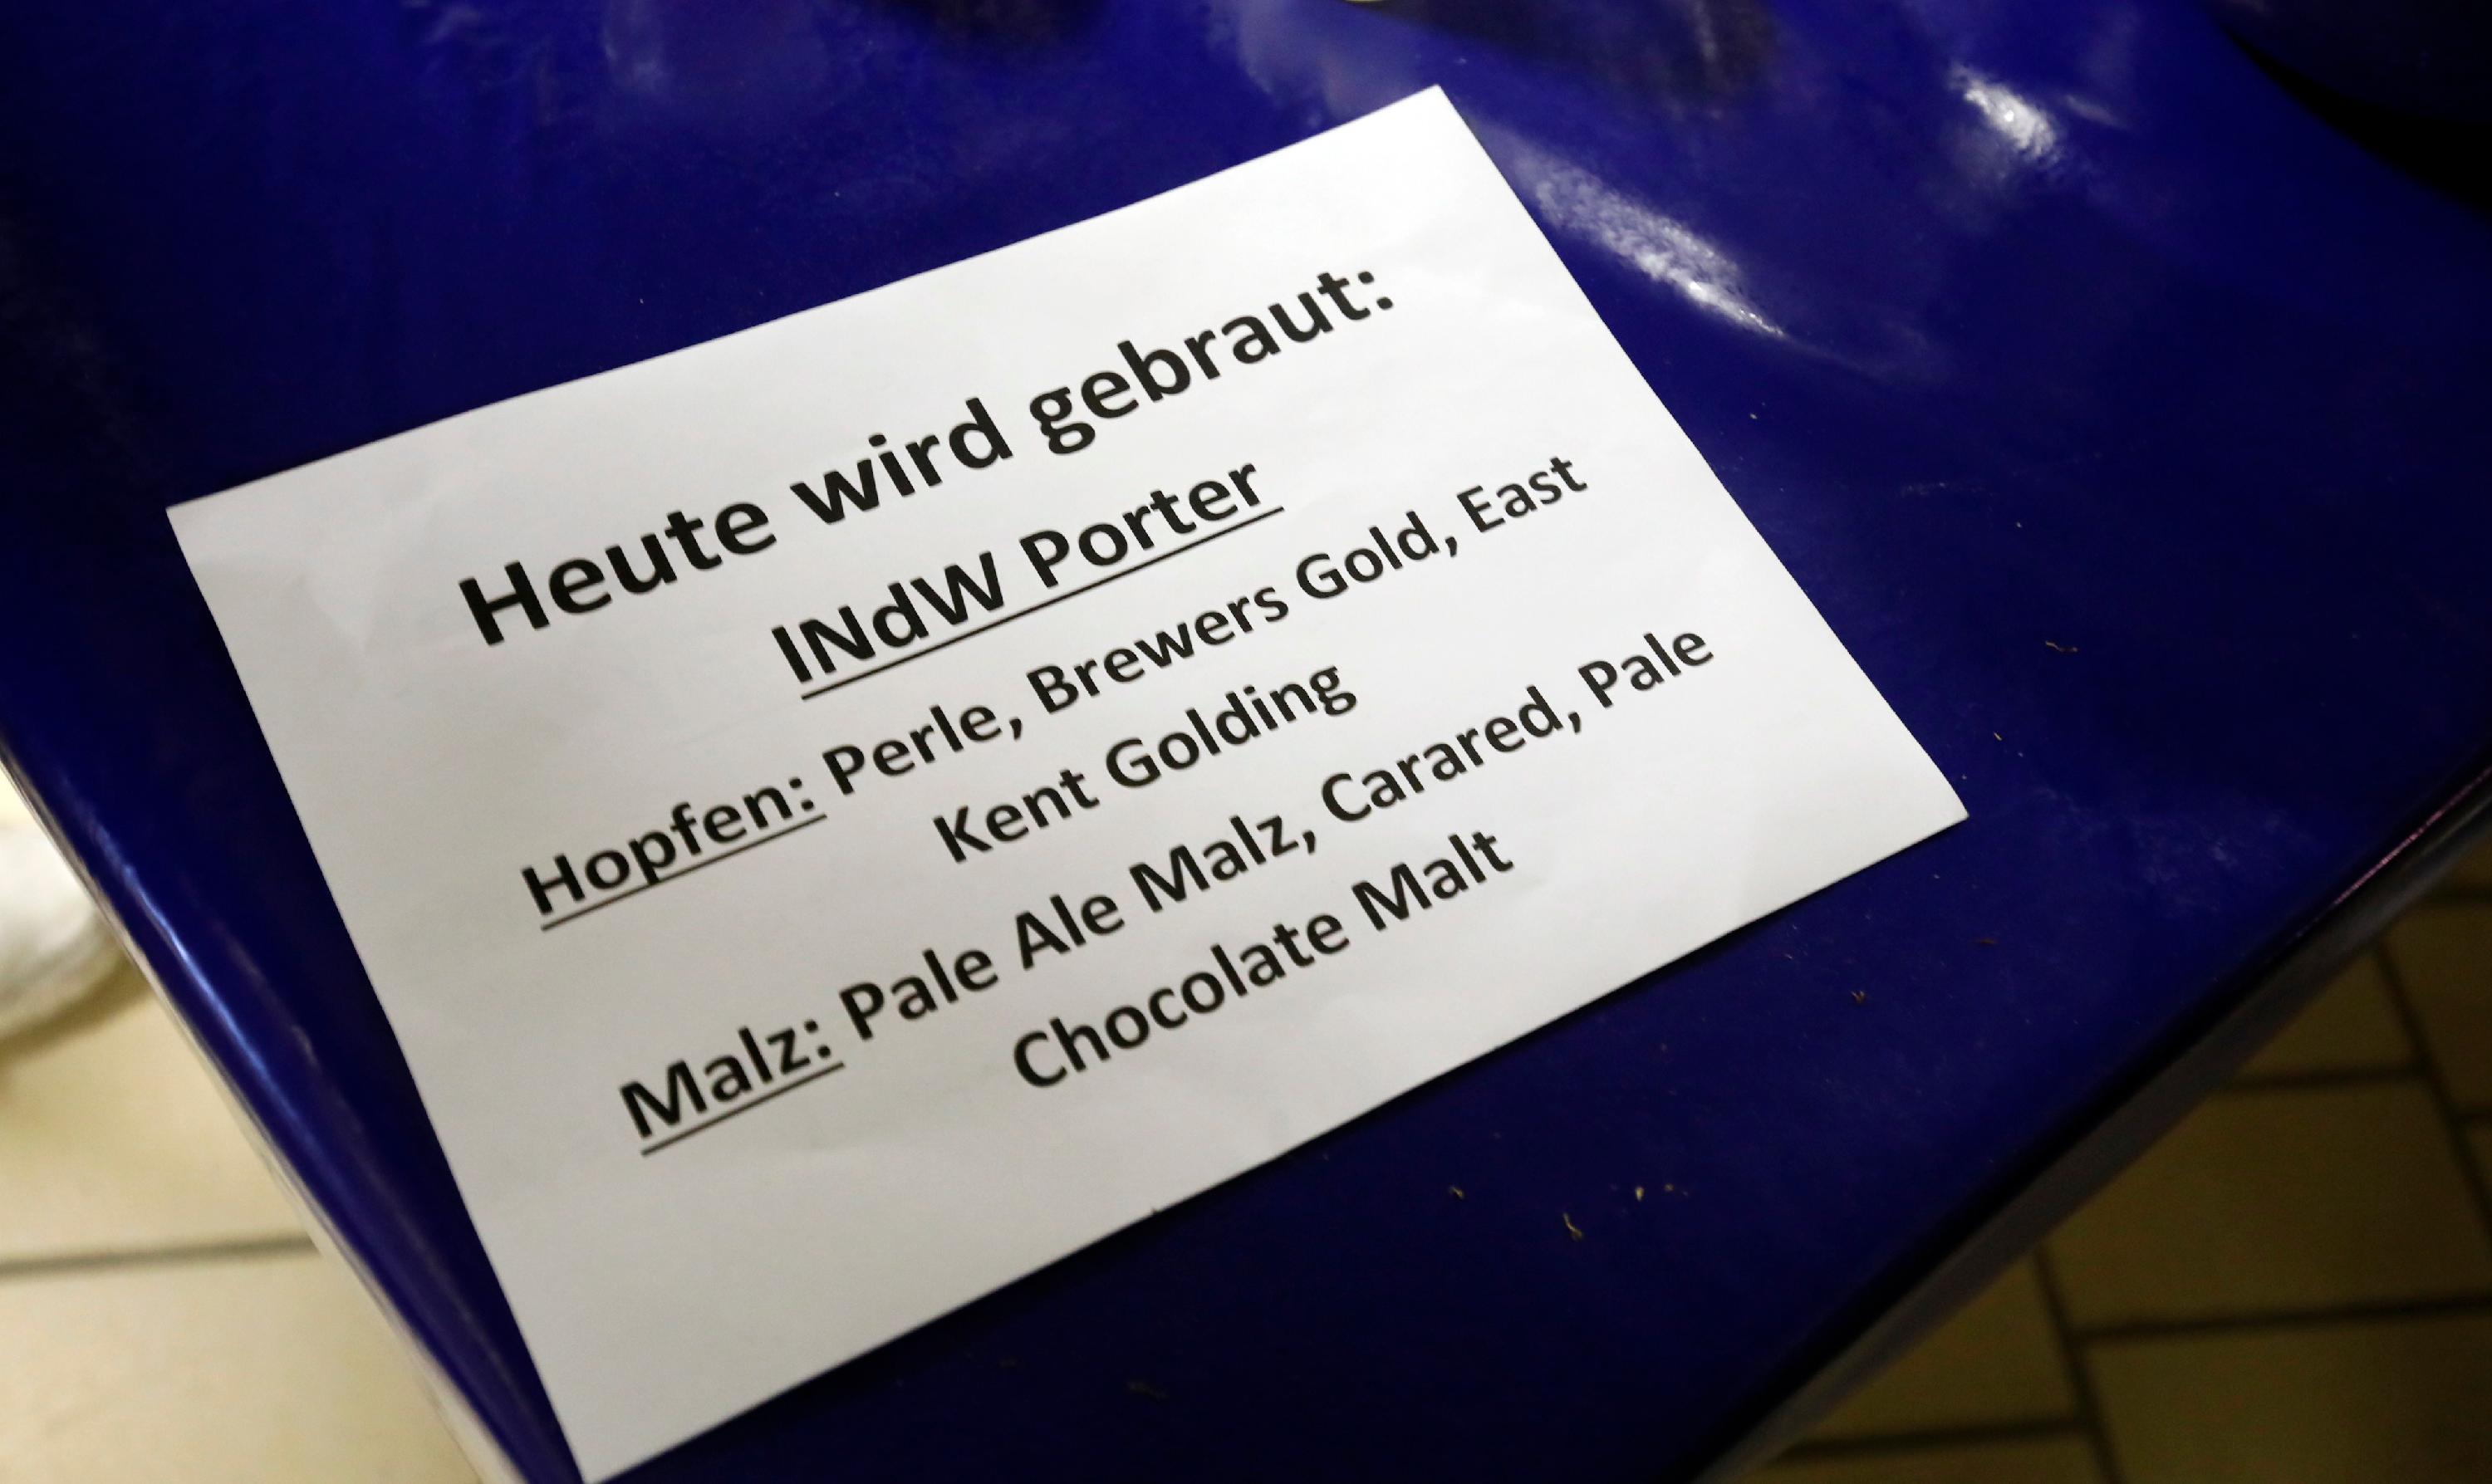 Heute wird gebraut:
INdW Porter
Hopfen: Perle, Brewers Gold, East
Kent Golding
Malz: Pale Ale Malz, Carared, Pale
Chocolate Malt